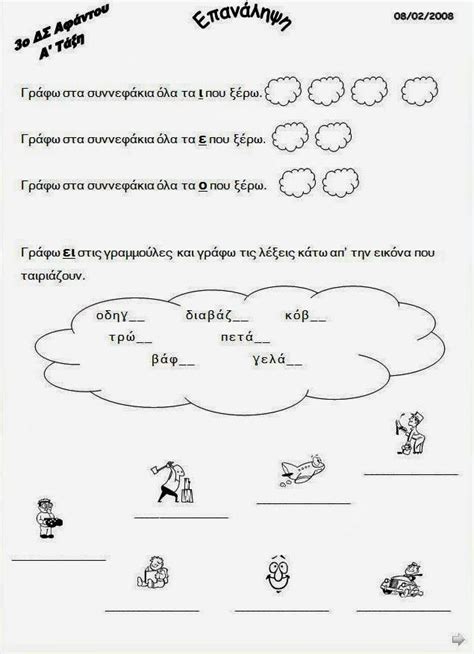 3ο ΔΣ Αφάντου
Α' Τάξη
Επανάληψη
08/02/2008
Γράφω στα συννεφάκια όλα τα ι που ξέρω.
Γράφω στα συννεφάκια όλα τα ε που ξέρω.
Γράφω στα συννεφάκια όλα τα ο που ξέρω.
Γράφω ει στις γραμμούλες και γράφω τις λέξεις κάτω απ' την εικόνα που
ταιριάζουν.
οδηγ__ διαβάζ__ κόβ__
τρώ__ πετά__
βάφ__ γελά__